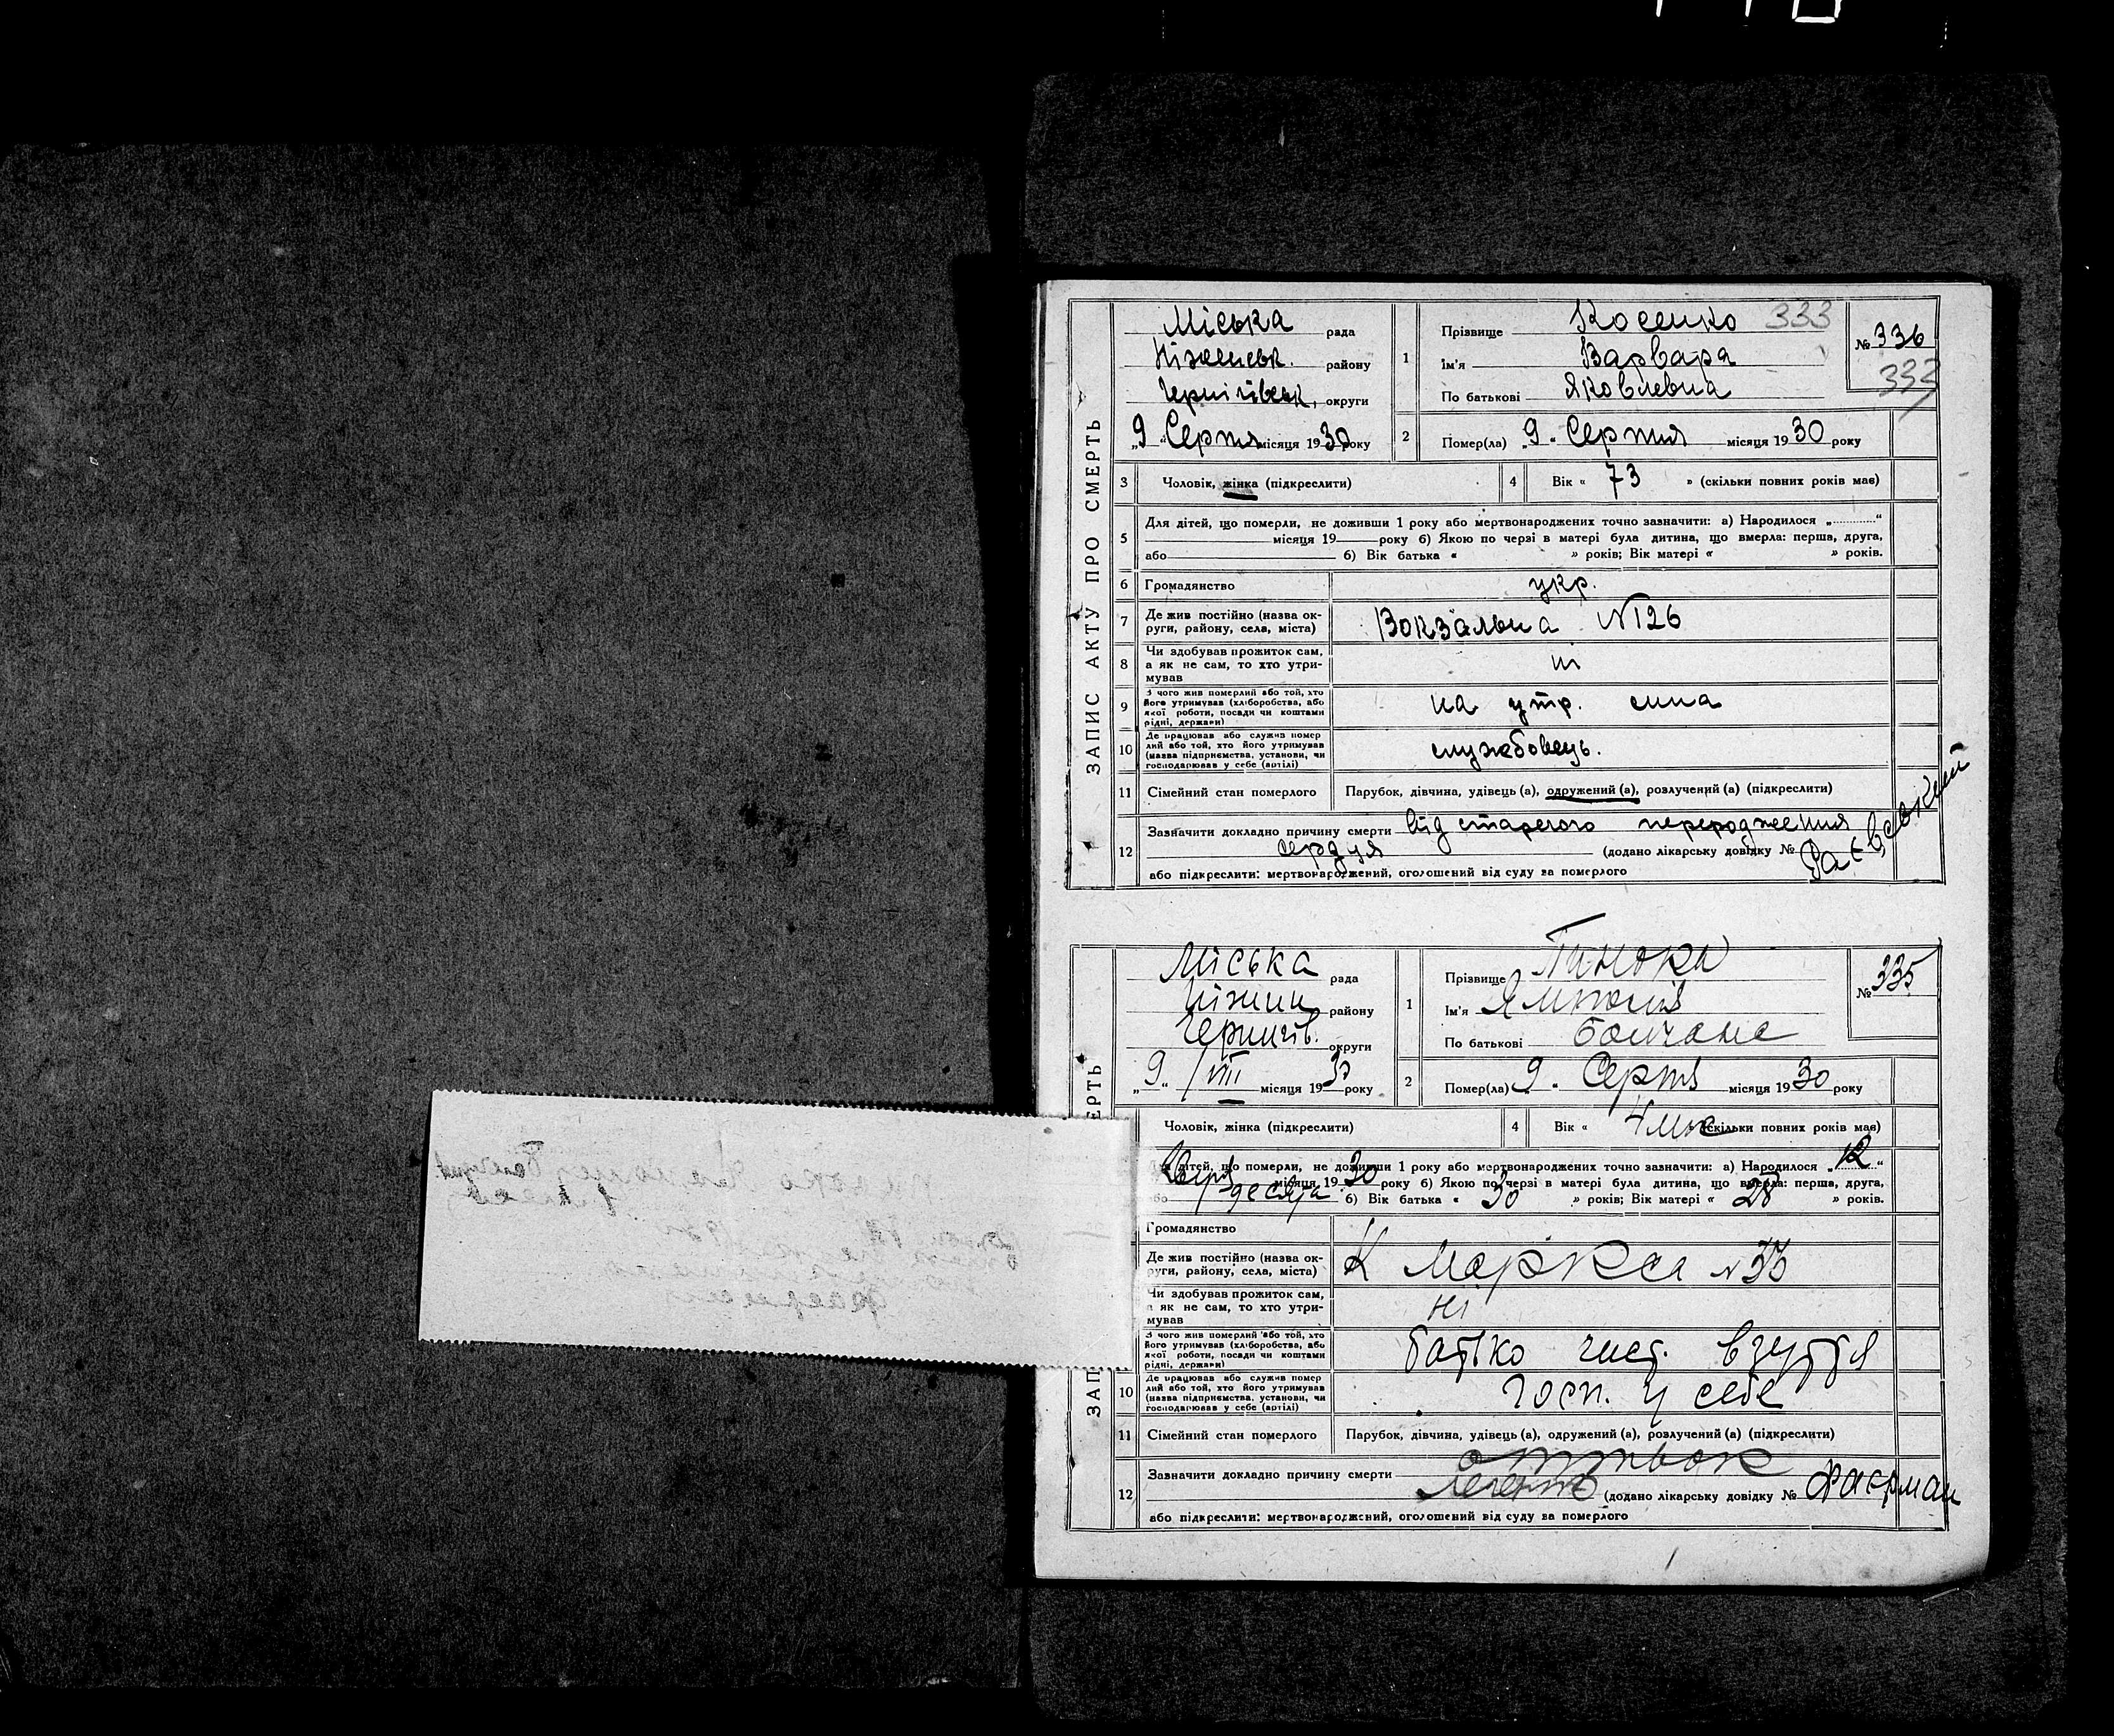 ЗАПИС АКТУ ПРО СМЕРТЬ
Міська рада
Ніженськ. району
Чернігівськ. округи
„9“ Серпня місяця 1930 року
1 Прізвище Косенко 333
Ім'я Варвара
По батькові Яковлевна
№ 336
333
2 Помер(ла) „9“ Серпня місяця 1930 року
3 Чоловік, жінка (підкреслити)
4 Вік « 73 » (скільки повних років має)
5 Для дітей, що померли, не доживши 1 року або мертвонароджених точно зазначити: а) Народилося „ “
місяця 19 року б) Якою по черзі в матері була дитина, що вмерла: перша, друга,
або б) Вік батька « » років; Вік матері « » років.
6 Громадянство укр.
7 Де жив постійно (назва ок-
руги, району, села, міста) Вокзальна №126
8 Чи здобував прожиток сам,
а як не сам, то хто утри-
мував ні
9 З чого жив померлий або той, хто
його утримував (хліборобства, або
якої роботи, посади чи коштами
рідні, держави) на утр. сина
10 Де працював або служив помер
лий або той, хто його утримував
(назва підприємства, установи, чи
господарював у себе (артілі) службовець.
11 Сімейний стан померлого Парубок, дівчина, удівець (а), одружений (а), розлучений (а) (підкреслити)
12 Зазначити докладно причину смерти від старечого переродження
сердця (додано лікарську довідку №
або підкреслити: мертвонароджений, оголошений від суду за померлого
ЗАП ЕРТЬ
Міська рада
Ніжин району
Чернигів. округи
„9“ /VIII місяця 1930 року
1 Прізвище
Ім'я
По батькові
№ 335
2 Помер(ла) 9 „ Серпня місяця 1930 року
Чоловік, жінка (підкреслити)
4 Вік « 4 міс (скільки повних років має)
дітей, що померли, не доживши 1 року або мертвонароджених точно зазначити: а) Народилося „12“
місяця 1930 року б) Якою по черзі в матері була дитина, що вмерла: перша, друга,
б) Вік батька « 30 » років; Вік матері « 28 » років.
Громадянство
Де жив постійно (назва ок-
руги, району, села, міста) К Маркса №
Чи здобував прожиток сам,
а як не сам, то хто утри-
мував ні
З чого жив померлий або той, хто
його утримував (хліборобства, або
якої роботи, посади чи коштами
рідні, держави) батько чист. взуття
10 Де працював або служив помер
лий або той, хто його утримував
(назва підприємства, установи, чи
господарював у себе (артілі) госп. у себе
11 Сімейний стан померлого Парубок, дівчина, удівець (а), одружений (а), розлучений (а) (підкреслити)
12 Зазначити докладно причину смерти
(додано лікарську довідку № Фаєрман
або підкреслити: мертвонароджений, оголошений від суду за померлого